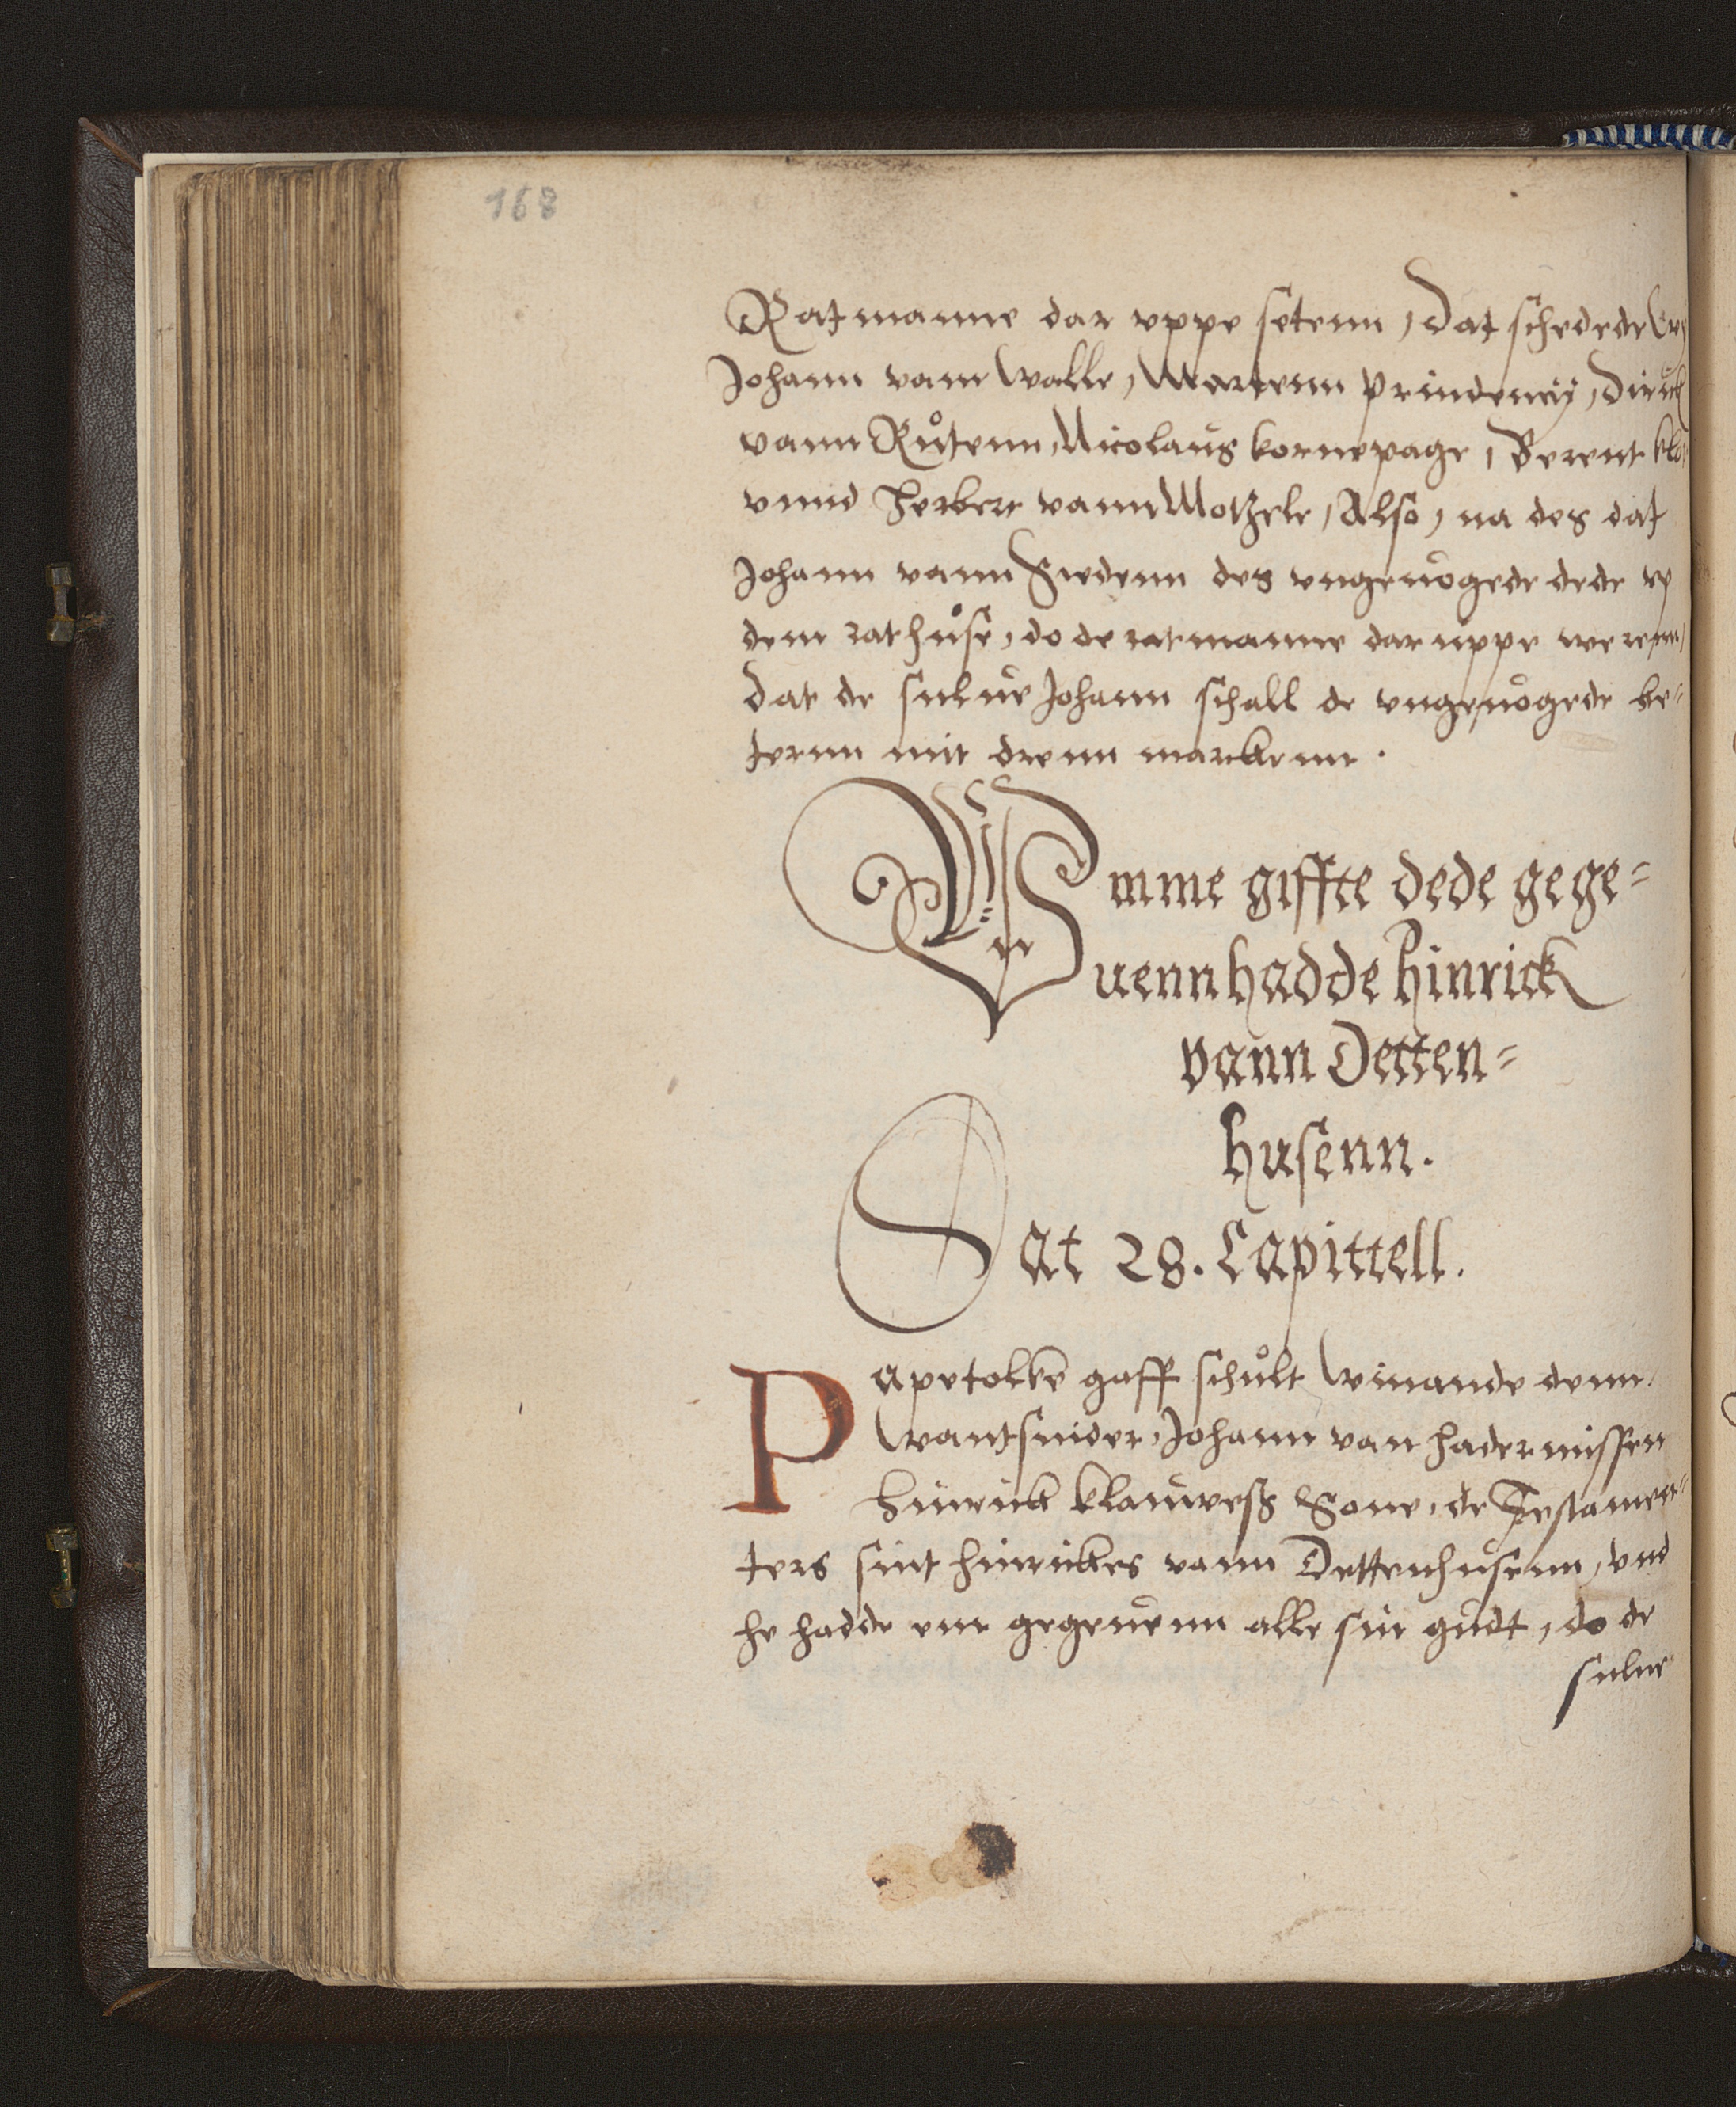 168
Ratmanne dar uppe setenn, Dat schedede
Johann vann Walle, Martenn Prindeneij, Dirick
vann Růtenn, Nicolaus kornepage, Berent
vnnd Herbert vann Motzele, Also, na des dat
Johann vann Syedenn des ungenögede dede up
dem rathůse, do de ratmanne dar uppe werenn,
dat de sulue Johann schall de vngenögede be=
ternn mit drenn marckenn.
Vmme giffte dede gege=
uenn hadde Hinrick
vann Detten=
husenn.
Dat 28. Capittell.
Papetolke gaff schůlt Winande denn
Wantsnider, Johann van hadermissen
Hinrick klaweß Sone, de Testamen=
ters sint Hinrickes vann Dettenhůsenn, vnd
he hadde em gegeuenn alle sin gůdt, do de
sulue